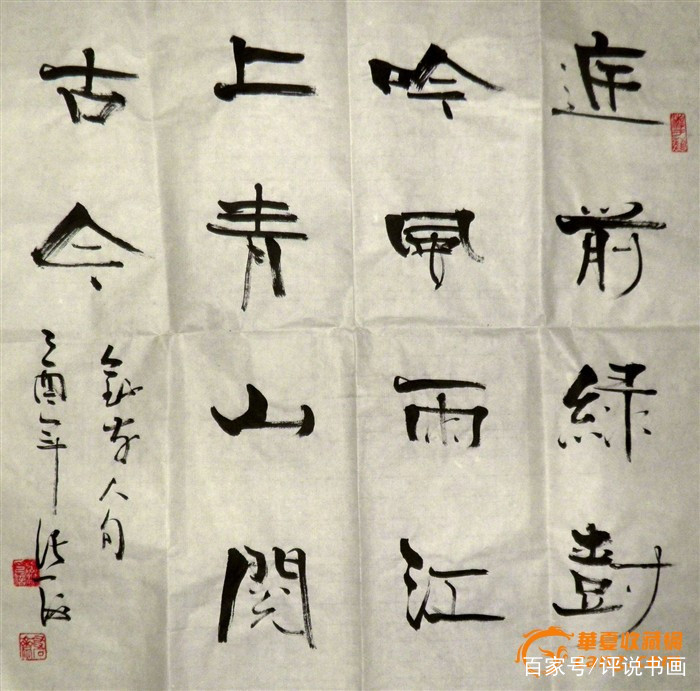 庭前緑尌
吟風雨江
上青山閱
古今
錄友人句
乙酉年
華夏收藏網
百家号/评说书画